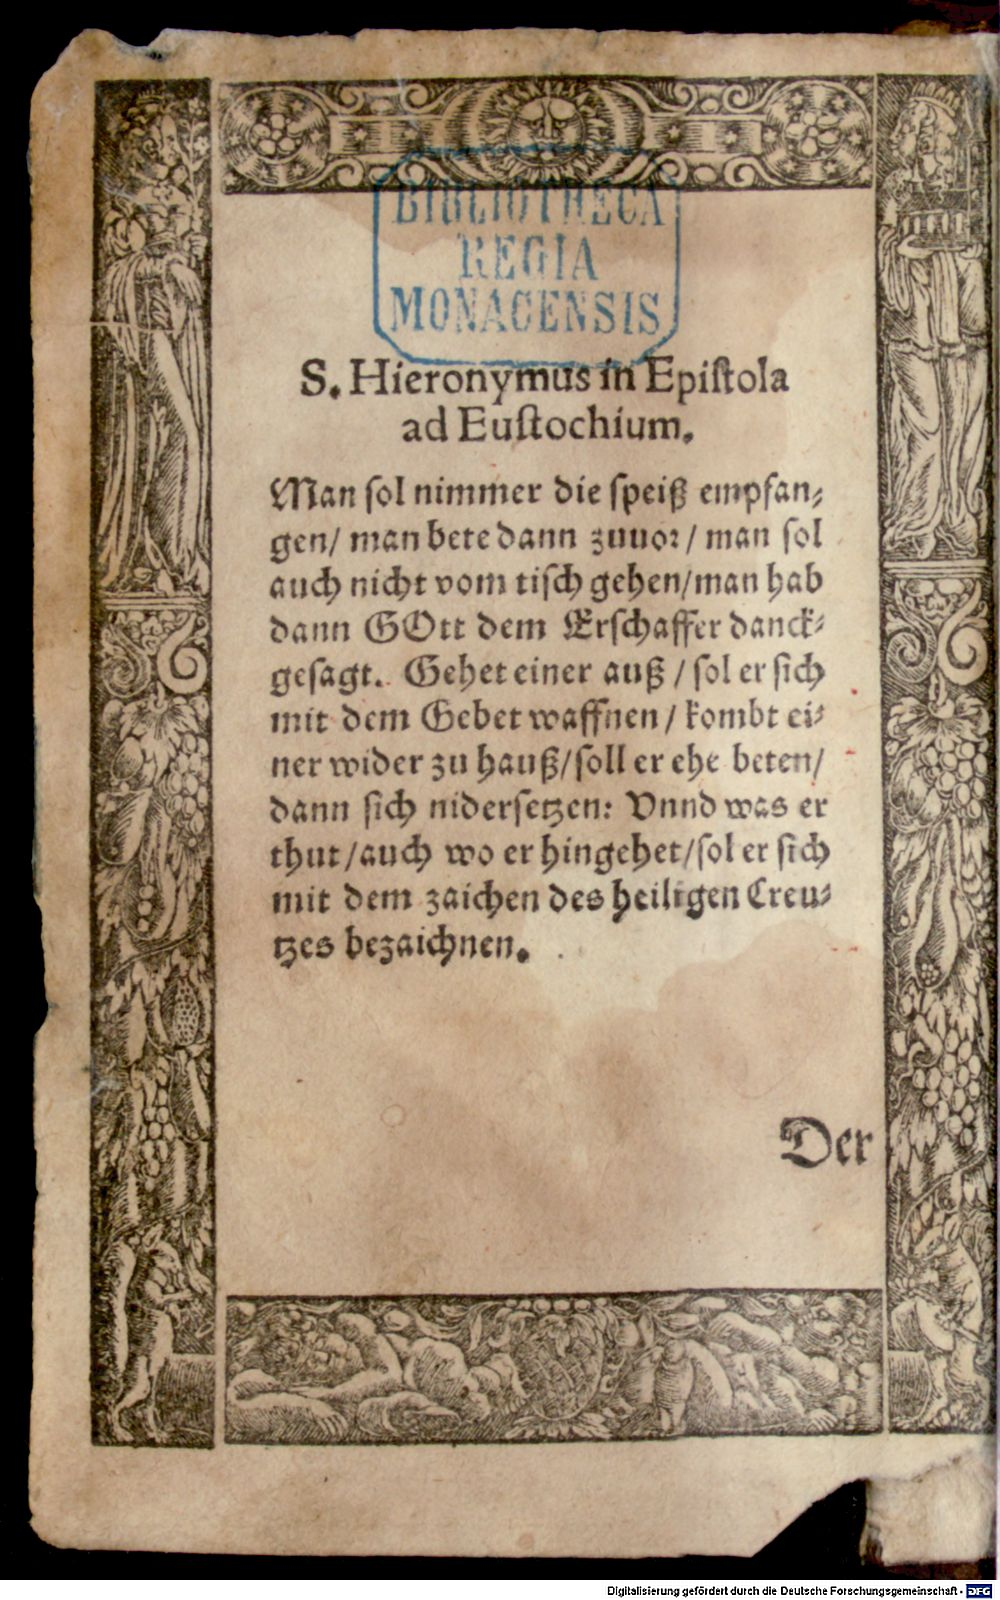 BIBLIOTHECA
REGIA
MONACENSIS
S. Hieronymus in Epiſtola
ad Euſtochium.
Man ſol nimmer die ſpeiß empfan⸗
gen/ man bete dann zuuor/ man ſol
auch nicht vom tiſch gehen/man hab
dann GOtt dem Erſchaffer danck⸗
geſagt. Gehet einer auß / ſol er ſich
mit dem Gebet waffnen / kombt ei⸗
ner wider zu hauß/ſoll er ehe beten/
dann ſich niderſetzen: Vnnd was er
thut/auch wo er hingehet/ſol er ſich
mit dem zaichen des heiligen Creu⸗
tzes bezaichnen.
Der
Digitalisierung gefördert durch die Deutsche Forschungsgemeinschaft - DFG